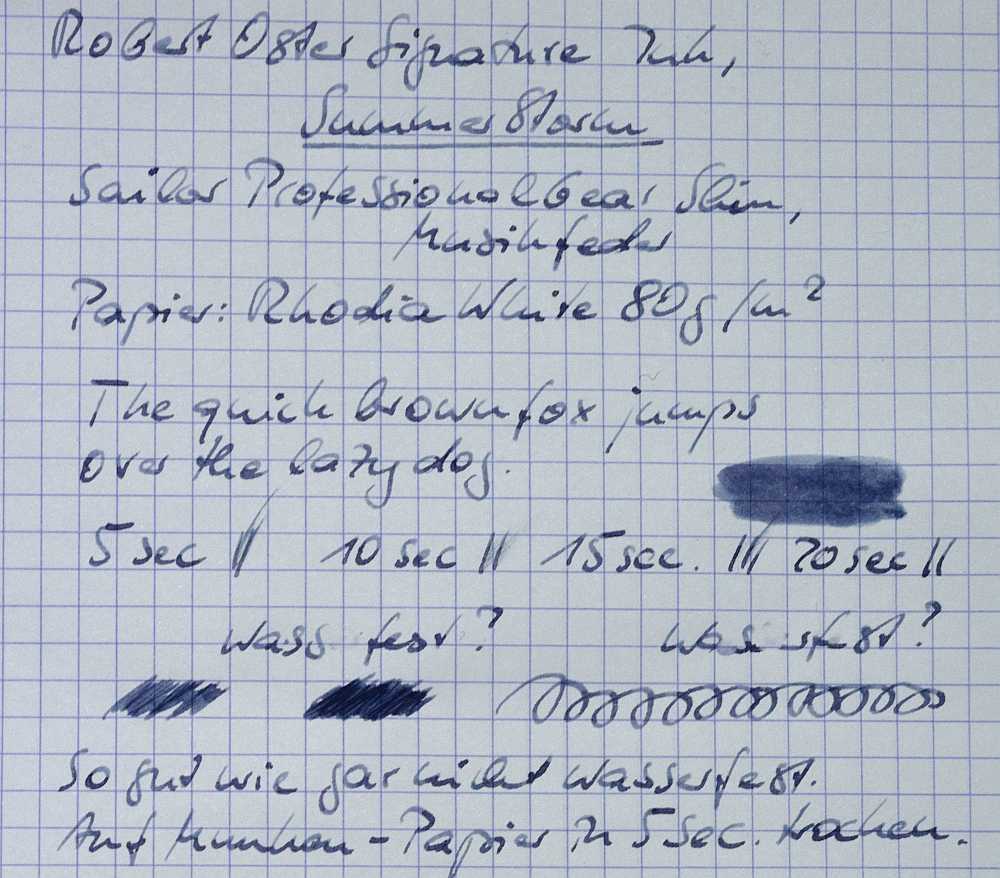 Robert Oster Signature Ink,
Summer Storm
Sailor Professional Gear Slim,
Musikfeder
Papier: Rhodia White 80g/m²
The quick brown fox jumps
over the lazy dog.
5 sec || 10 sec || 15 sec. ||| 20 sec ||
wass fest? was sfest?
So gut wie gar nicht wasserfest.
Auf Munken-Papier in 5 Sec. trocken.